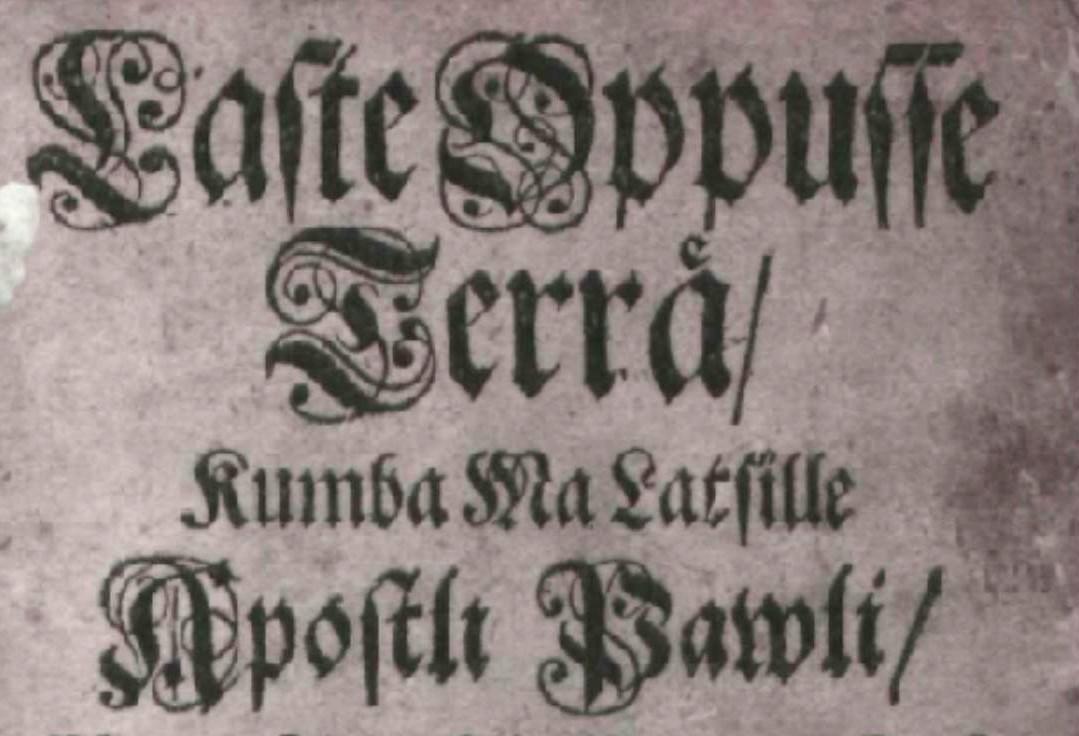 Laste Oppusse
Terrå/
Kumba Ma Latsille
Apostli Pawli/